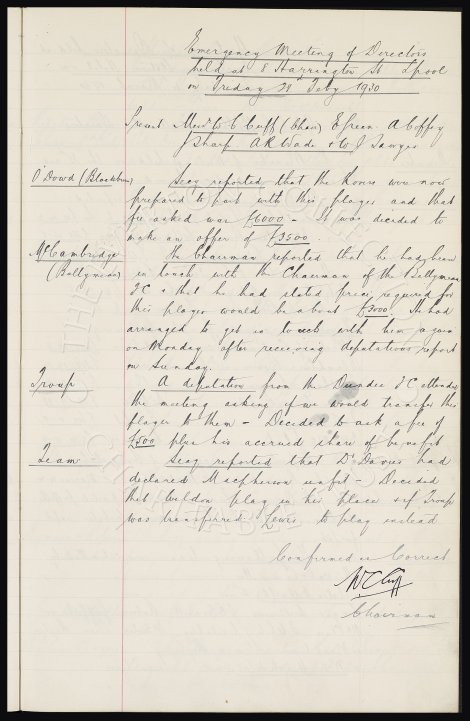 Emergency Meeting of Directors
held at 8 Harrington St Lpool
on Friday 28th Feby 1930
Present Messrs W C Cuff (Chair) E Green A Coffey
J Sharp. A R Wade & W J Sawyer
O'Dowd (Blackburn) Secy reported that the Rovers were now
prepared to part with this player and that
fee asked was £6000 - It was decided to
make an offer of £3500.
McCambridge The Chairman reported that he had been
(Ballymena) in touch with the Chairman of the Ballymena
FC & that he had stated price required for
this player would be about £3000. He had
arranged to get in touch with him again
on Monday after receiving deputations report
on Sunday.
Troup A deputation from the Dundee FC attended
the meeting asking if we would transfer this
player to them - Decided to ask a fee of
£500 plus his accrued share of benefit
Team Secy reported that Dr Davies had
declared Macpherson unfit - Decided
that Weldon play in his place & if Troup
was transferred Lewis to play instead
Confirmed as Correct
W C Cuff
Chairman